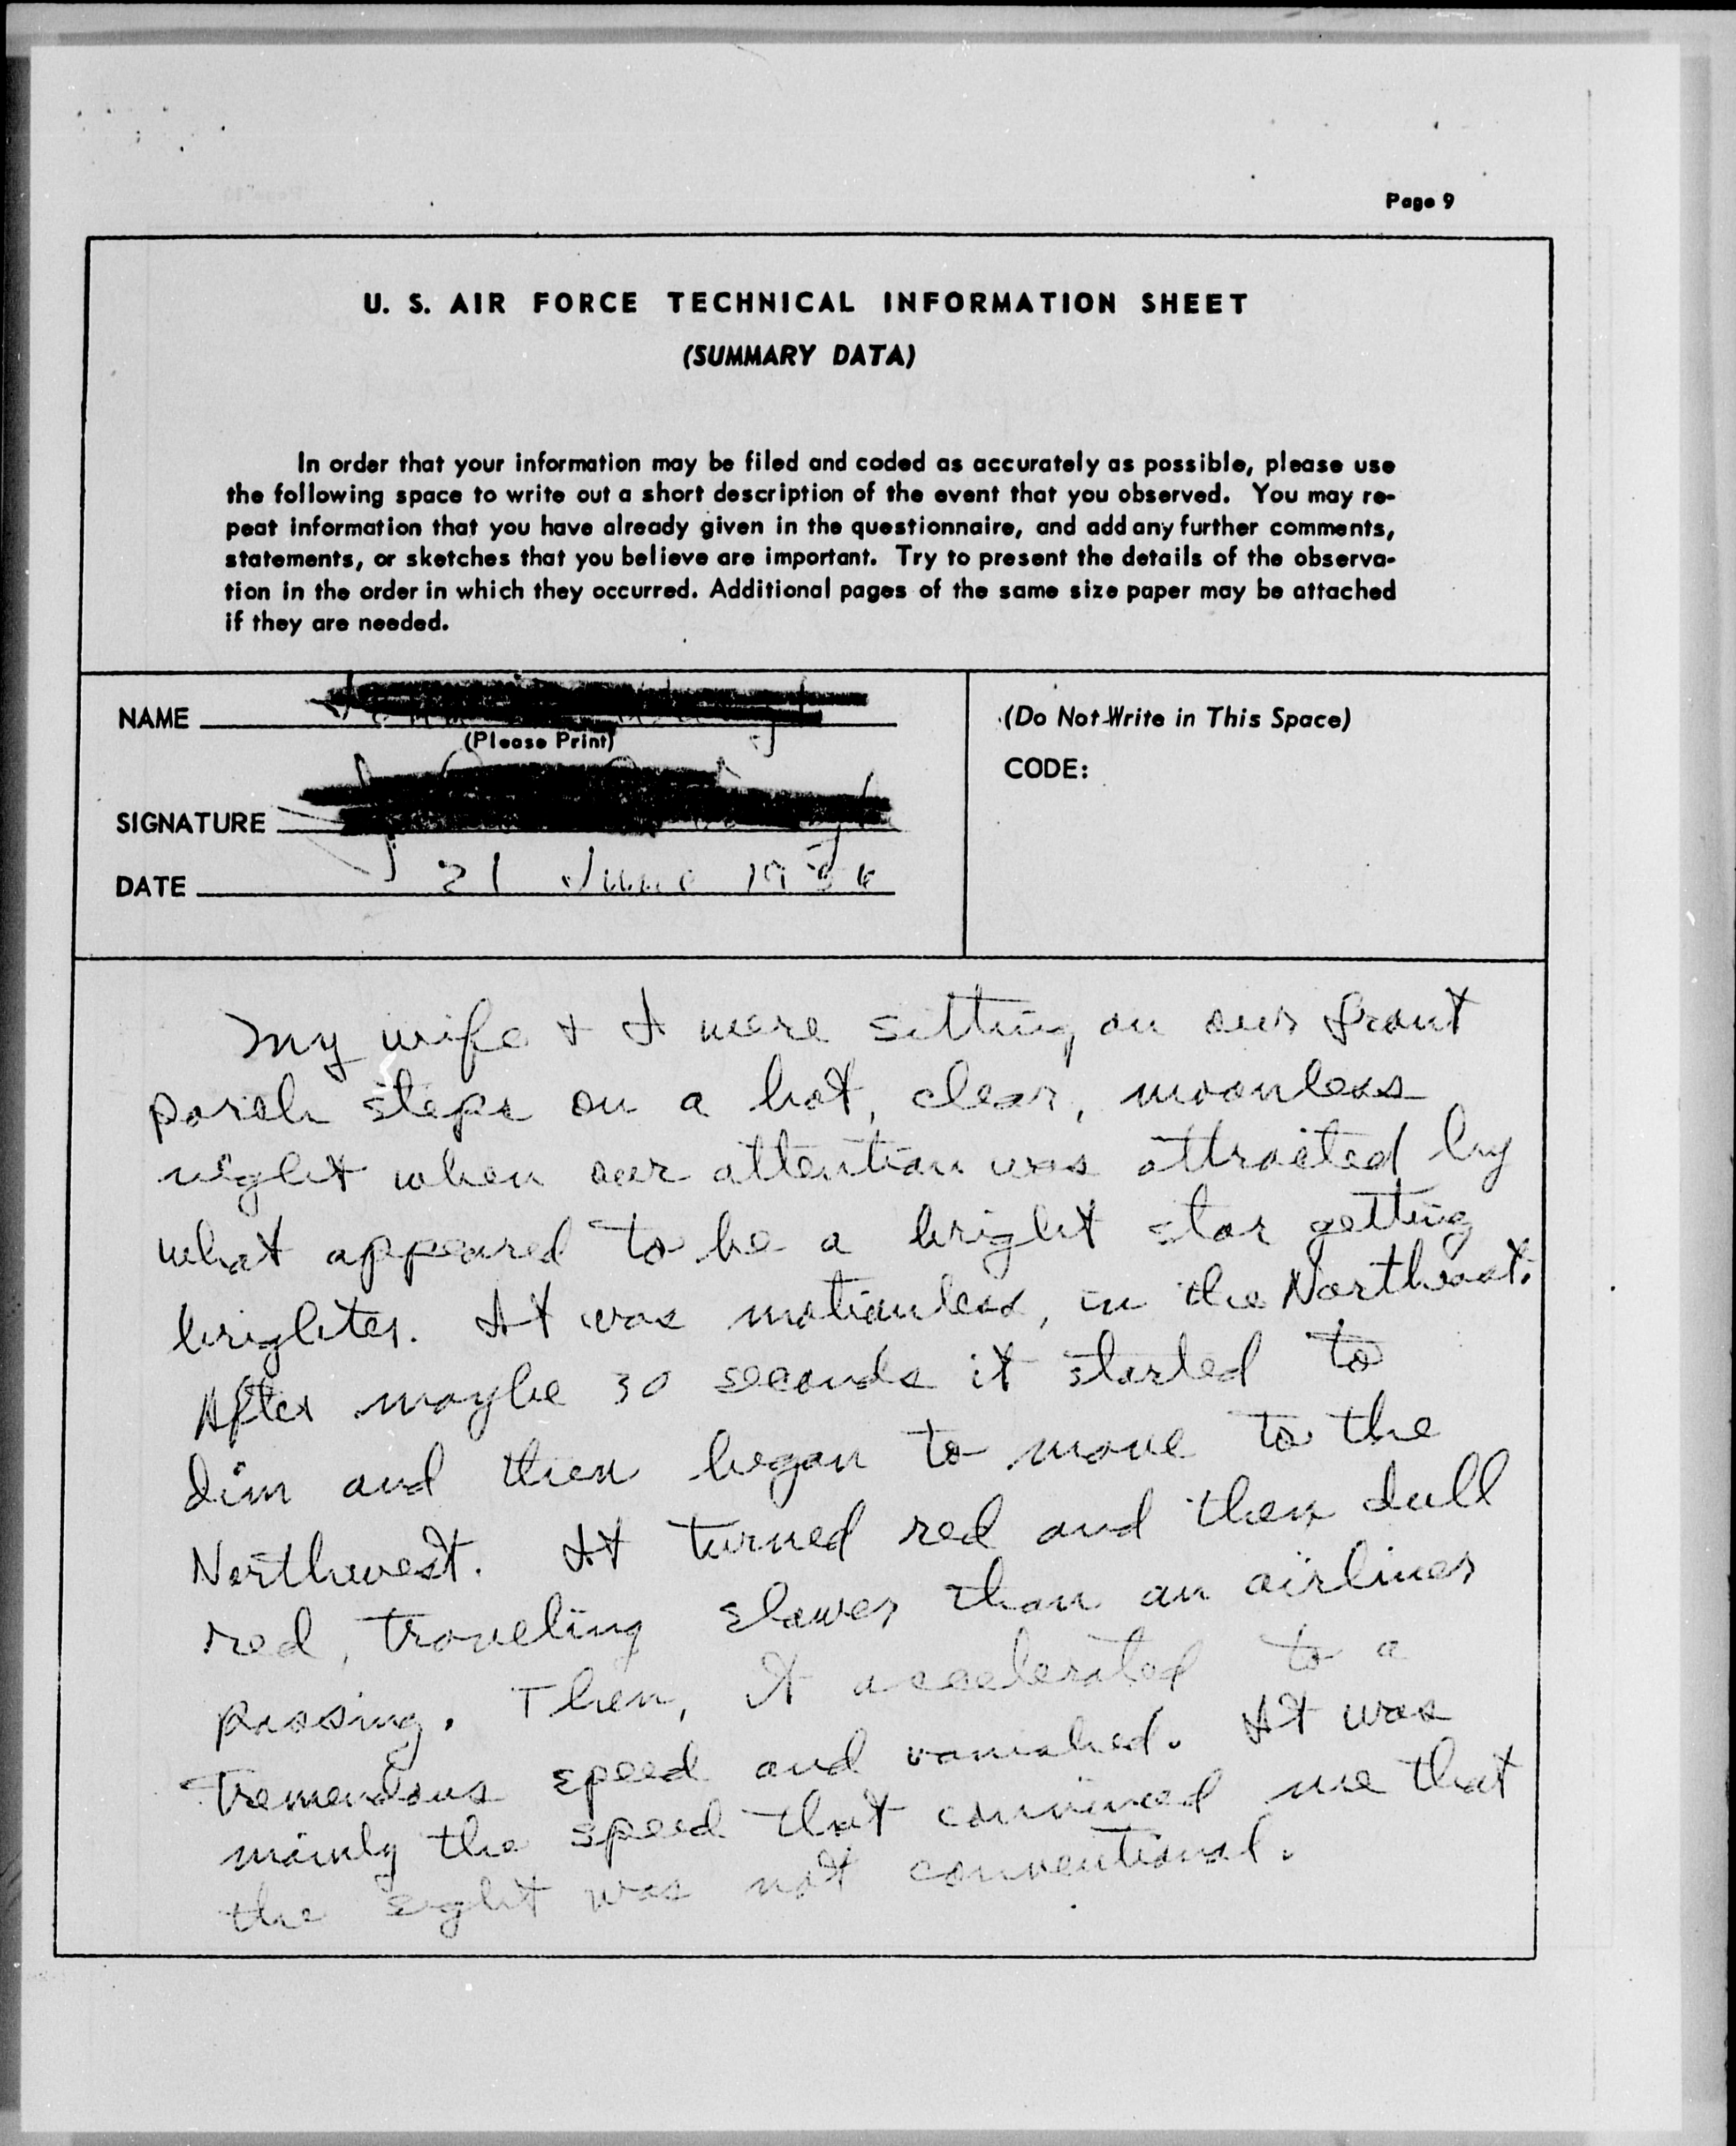 Page 9
U. S. AIR FORCE TECHNICAL INFORMATION SHEET
(SUMMARY DATA)
In order that your information may be filed and coded as accurately as possible, please use
the following space to write out a short description of the event that you observed. You may re-
peat information that you have already given in the questionnaire, and add any further comments,
statements, or sketches that you believe are important. Try to present the details of the observa-
tion in the order in which they occurred. Additional pages of the same size paper may be attached
if they are needed.
NAME
(Please Print)
SIGNATURE
DATE 21 June
(Do Not Write in This Space)
CODE:
My wife & I were sitting on our front
porch steps on a hot, clear, moonless
night when our attention was attracted by
what appeared to be a bright star getting
brighter. It was motionless, in the Northeast.
After maybe 30 seconds it started to
dim and then began to move to the
Northwest. It turned red and then dull
red, traveling slower than an airliner
passing. Then, it accelerated to a
tremendous speed and vanished. It was
mainly the speed that convinced me that
the sight was not conventional.